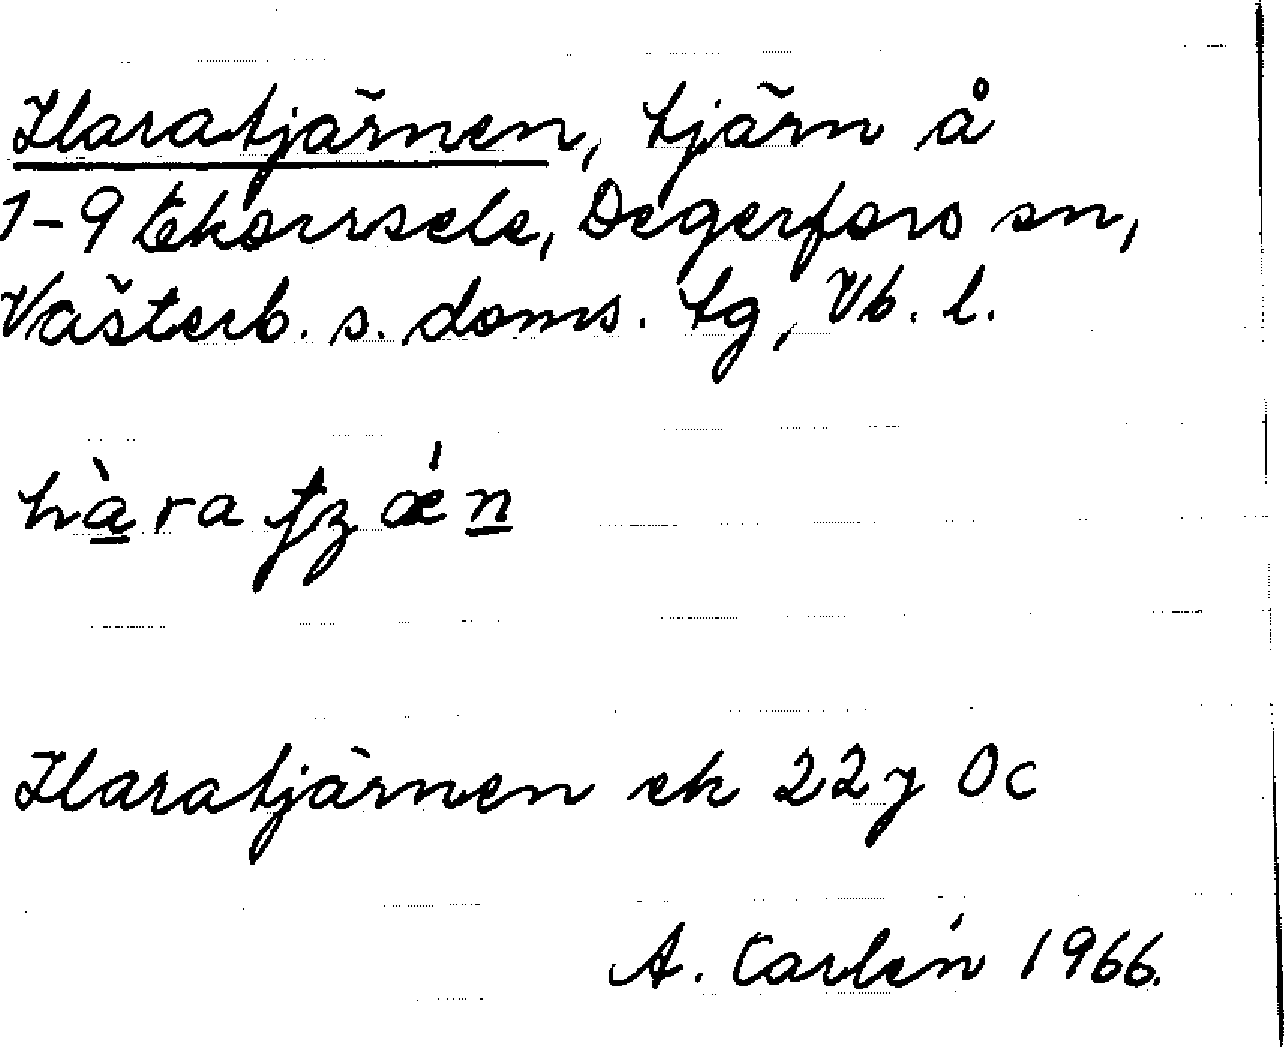 Haratjärnen, tjärn å
1-9 Ekorrsele, Degerfors sn,
Västerb. s. doms. tg, Vb. l.
hàra
Haratjärnen ek 22 j 0c
A. Carlén 1966.